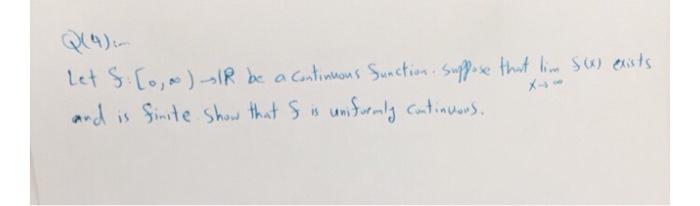 Q(4):-
Let f:[0,∞)→IR be a continuous function. suppose that lim f(x) exists
x→∞
and is finite show that f is uniformly continuous.